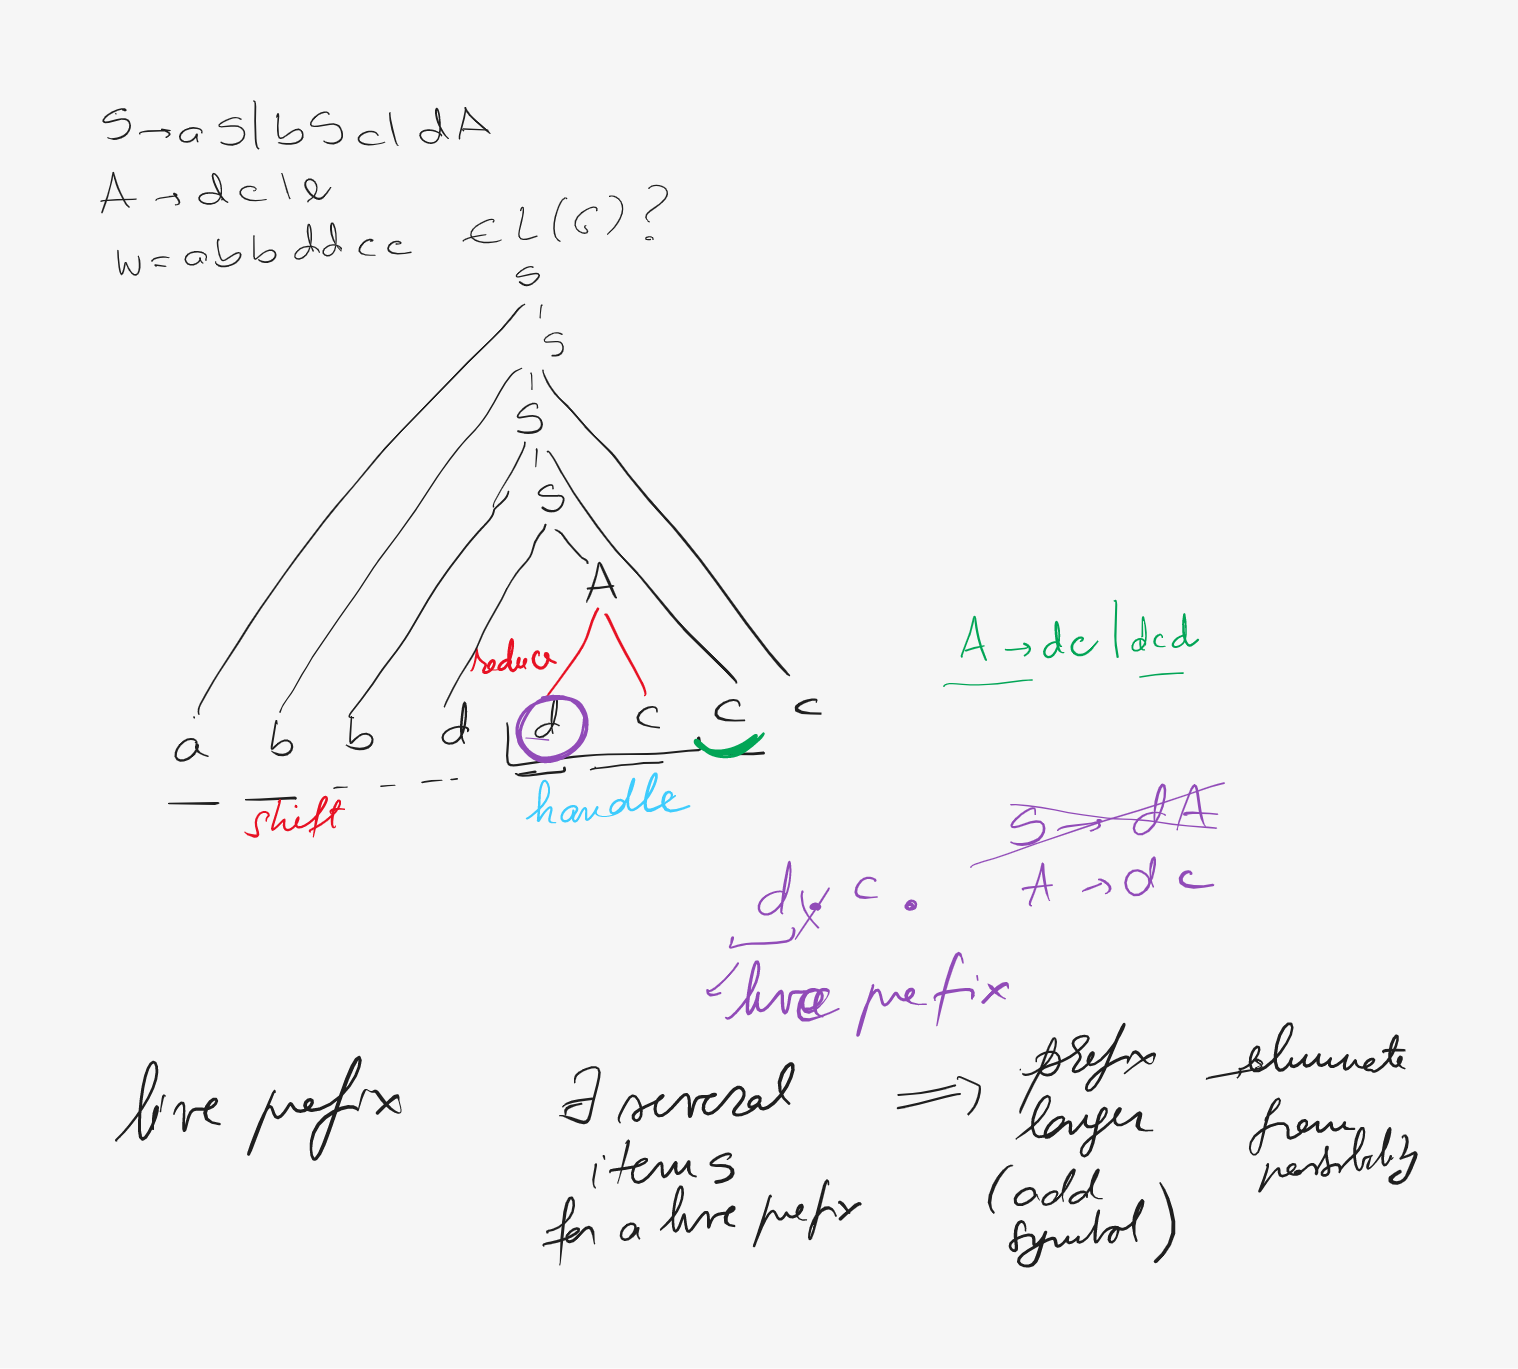 S→aS|bSc|dA
A→dc|e
w=abbddcc ∈L(G)?
S
S
S
S
A
reduce
a b b d d c c c
A→dc|dcd
shift
handle
S→dA
A→dc
d.c.
live prefix
live prefix
∃ several
items
for a live prefix
⇒
prefix
longer
(add
symbol)
eliminate
from
possibility